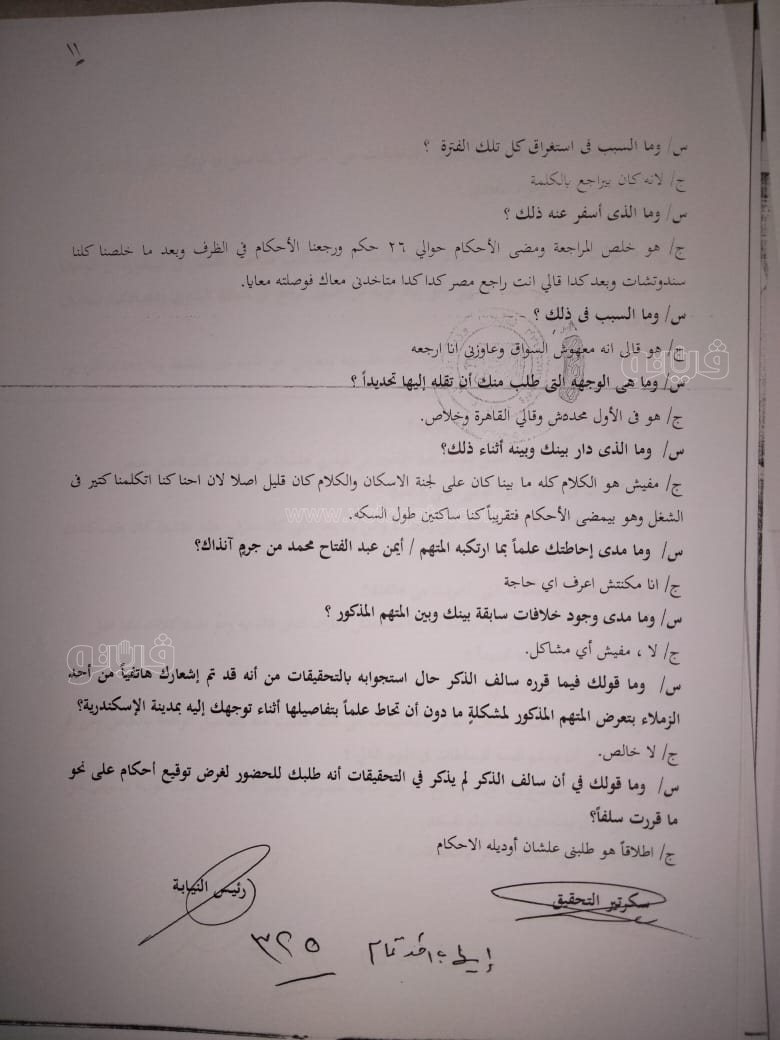 ١١
س/ وما السبب فى استغراق كل تلك الفترة ؟
ج/ لانه كان بيراجع بالكلمة
س/ وما الذى أسفر عنه ذلك ؟
ج/ هو خلص المراجعة ومضى الأحكام حوالي ٢٦ حكم ورجعنا الأحكام في الظرف وبعد ما خلصنا كلنا
سندوتشات وبعد كدا قالي انت راجع مصر كدا كدا متاخدنى معاك فوصلته معايا.
س/ وما السبب فى ذلك ؟
ج/ هو قالى انه معهوش السواق وعاوزنى انا ارجعه
س/ وما هى الوجهه التى طلب منك أن تقله إليها تحديداً ؟
ج/ هو فى الأول محددش وقالي القاهرة وخلاص.
س/ وما الذى دار بينك وبينه أثناء ذلك؟
ج/ مفيش هو الكلام كله ما بينا كان على لجنة الاسكان والكلام كان قليل اصلا لان احنا كنا اتكلمنا كتير فى
الشغل وهو بيمضى الأحكام فتقريباً كنا ساكتين طول السكه.
س/ وما مدى إحاطتك علماً بما ارتكبه المتهم / أيمن عبد الفتاح محمد من جرمٍ آنذاك؟
ج/ انا مكنتش اعرف اي حاجة
س/ وما مدى وجود خلافات سابقة بينك وبين المتهم المذكور ؟
ج/ لا ، مفيش أي مشاكل.
س/ وما قولك فيما قرره سالف الذكر حال استجوابه بالتحقيقات من أنه قد تم إشعارك هاتفياً من أحد
الزملاء بتعرض المتهم المذكور لمشكلةٍ ما دون أن تحاط علماً بتفاصيلها أثناء توجهك إليه بمدينة الإسكندرية؟
ج/ لا خالص.
س/ وما قولك في أن سالف الذكر لم يذكر في التحقيقات أنه طلبك للحضور لغرض توقيع أحكام على نحو
ما قررت سلفاً؟
ج/ اطلاقاً هو طلبنى علشان أوديله الاحكام
سكرتير التحقيق رئيس النيابة
٣٢٥
فيتو
فيتو